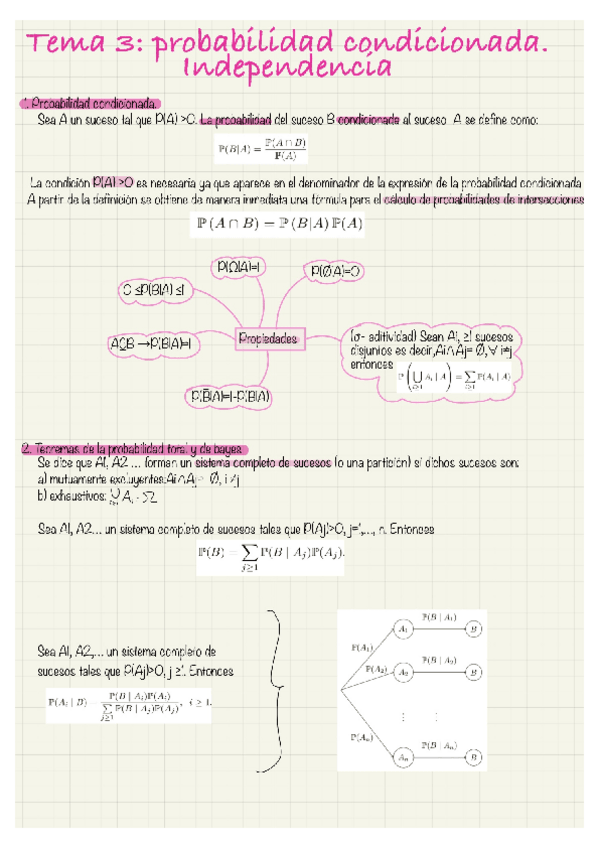 Tema 3: probabilidad condicionada.
Independencia
1. Probabilidad condicionada.
Sea A un suceso tal que P(A) >0. La probabilidad del suceso B condicionada al suceso A se define como:
P(B|A) = P(A ∩ B) / P(A)
La condición P(A) >0 es necesaria ya que aparece en el denominador de la expresión de la probabilidad condicionada
A partir de la definición se obtiene de manera inmediata una fórmula para el cálculo de probabilidades de intersecciones
P (A ∩ B) = P (B|A) P(A)
P(Ω|A)=1
P(Ø|A)=0
0 ≤P(B|A) ≤1
A⊆B →P(B|A)=1
Propiedades
(σ- aditividad) Sean Ai, ≥1 sucesos
disjuntos es decir,Ai∩Aj= Ø,∀ i≠j
entonces
P(⋃i≥1 Ai | A) = ∑i≥1 P(Ai | A)
P(B̄|A)=1-P(B|A)
2. Teoremas de la probabilidad total y de bayes
Se dice que A1, A2 ... forman un sistema completo de sucesos (o una partición) si dichos sucesos son:
a) mutuamente excluyentes:Ai∩Aj= Ø, i ≠j
b) exhaustivos: ∪ Ai = Ω
Sea A1, A2... un sistema completo de sucesos tales que P(Aj)>0, j=1,..., n. Entonces
P(B) = ∑j≥1 P(B | Aj)P(Aj).
Sea A1, A2,... un sistema completo de
sucesos tales que P(Aj)>0, j ≥1. Entonces
P(Ai | B) = P(B | Ai)P(Ai) / ∑j≥1 P(B | Aj)P(Aj), i ≥ 1.
P(A1) A1 P(B | A1) B
P(A2) A2 P(B | A2) B
⋮ ⋮
P(An) An P(B | An) B